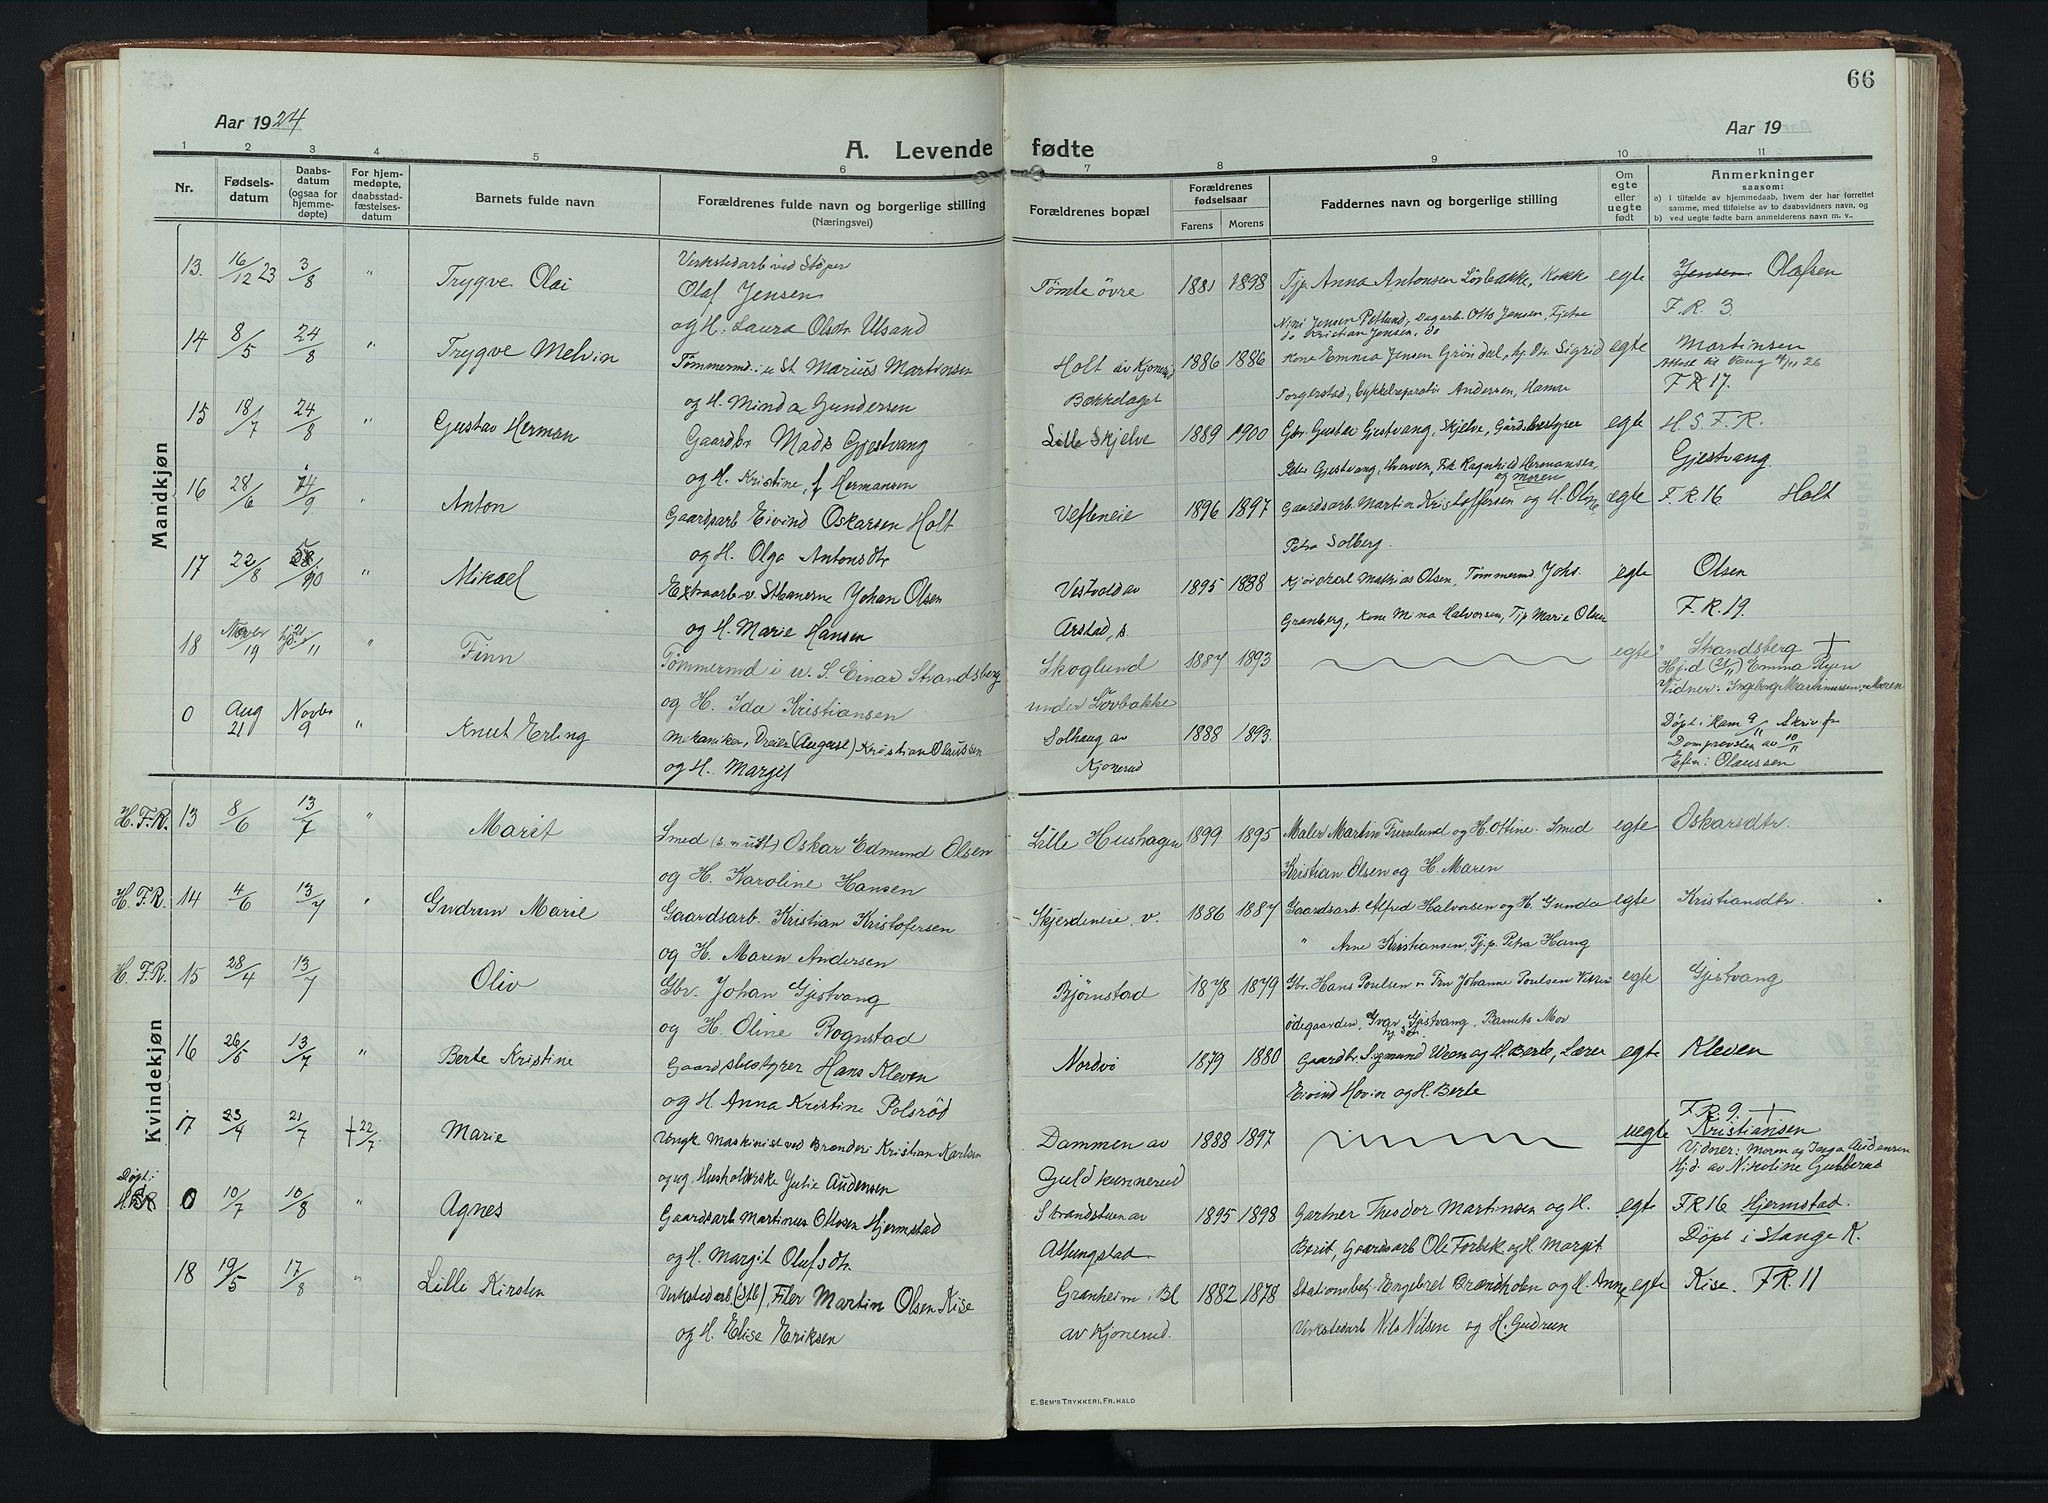 66
Aar 1924
Aar 19
A. Levende fødte
1 2 3 4 5 6 7 8 9 10 11
Nr.
Fødselsdatum
Daabsdatum (ogsaa for hjemmedøpte)
For hjemmedøpte, daabsstadfæstelsesdatum
Barnets fulde navn
Forældrenes fulde navn og borgerlige stilling (Næringsvei)
Forældrenes bopæl
Forældrenes fødselsaar
Farens Morens
Faddernes navn og borgerlige stilling
Om egte eller uegte født
Anmerkninger saasom:
a) i tilfælde av hjemmedaab, hvem der har forrettet samme, med tilføielse av to daabsvidners navn, og
b) ved uegte fødte barn anmelderens navn m. v..
Mandkjøn
13. 16/12 23 3/8 " Trygve Olai Verkstedarb ved Støper Olaf Jensen Tomte øvre 1881 1898 Tjp Anna Antonsen Lovbakke, Kokk egte Jensen Olafsen
og H. Laura Olsdtr Ulsand Nini Jensen Petlund, Dagarb. Otto Jensen, Fjetre F. R. 3.
do Kristian Jensen, do
14 8/5 24/8 " Trygve Melvin Tømmermd. i u St Marius Martinsen Holt av Kjonerud 1886 1886 Kone Emma Jensen Grøndal, Sigrid egte Martinsen
Attest til Vang 4/11 26
og H. Minda Gundersen Bækkedaget Torgerstad, Cykkelreparatør Andersen, Hamar F R 17.
15 18/7 24/8 Gustav Herman Gaardbr Mads Gjestvang Lille Skjelve 1889 1900 Gbr. Gustav Gjestvang, Skjelve, Gårdsbestyrer egte H. S. F. R.
og H. Kristine, f Hermansen Peder Gjestvang, Frk Ragnhild Hermansen, og Moren Gjestvang.
16 28/6 14/9 " Anton Gaardsarb Eivind Oskarsen Holt Vefleneie 1896 1897 Gaardsarb. Martin Kristoffersen og H. Oline egte F. R 16 Holt
og H. Olga Antonsdtr Petra Solberg.
17 22/8 " Mikael Extraarb v. Stbanerne Johan Olsen Vestvold av 1895 1888 Kjørekarl Mathias Olsen, Tømmermd. Johs. egte Olsen
og H. Marie Hansen Arstad, s. Granberg, Kone Mina Halvorsen, Tjp Marie Olsen F. R. 19.
18 Novbr 19 hjd. 21/11 " Finn Tømmermd i u. S. Einar Strandsberg Skoglund 1887 1893 egte Strandsberg †
og H. Ida Kristiansen under Lovbakke Hj.d (21/11) Emma Ryen
Vidner: Ingeborg Martinussen, Moren
0 Aug 21 Novbr 9 " Knut Erling Mekaniker, Dreier (August) Kristian Olaussen Solhaug av 1888 1893. Døpt: Ham 9/11 Skriv fr
og H. Margit Kjonerud Domprovsten av 10/11
Eftn: Olaussen
Kvindekjøn
H. F. R. 13 8/6 13/7 " Marit Smed Oskar Edmund Olsen Lille Hushagen 1899 1895 Maler Martin Furulund og H. Ottine. Smed egte Oskarsdtr.
og H. Karoline Hansen Kristian Olsen og H. Maren
H. F. R. 14 4/6 13/7 " Gudrun Marie Gaardsarb. Kristian Kristofersen Skjerdineie. v. 1886 1887 Gaardsarb. Alfred Halvorsen og H. Gunda egte Kristiansdtr.
og H. Maren Andersen " Arne Kristiansen, Tj.p. Petra Haug
H. F. R. 15 28/4 13/7 Oliv Gbr. Johan Gjestvang Bjørnstad 1878 1879 Gbr. Hans Poulsen Johanne Poulsen egte Gjestvang
og H. Oline Rognstad ødegaarden, Ivar Gjestvang, Barnets Mor
16 26/5 13/7 " Berte Kristine Gaardsbestyrer Hans Kleven Nordvi 1879 1880 Gaardbr. Sigmund Ween og H. Berte, Lærer egte Kleven
og H Anna Kristine Polsrød Eivind Hovin og H. Berte
17 23/4 21/7 † 22/7 Marie Ungk. Maskinist ved Brænderi Kristian Karlsen Dammen av 1888 1897 uegte F. R. 9. † Kristiansen
og ug. Husholderske Julie Audensen Guldkunnerud Vidner: Morm og Inga Audensen
Hj.d. av Nikoline Gubberud
Døpt: H.S.R 0 10/7 10/8 " Agnes Gaardsarb Martinus Ottosen Hjermstad Strandstuen av 1895 1898 Gartner Theodor Martinsen og H. egte FR 16 Hjermstad.
og H. Margit Olufsdtr. Atlungstad Berit, Gaardsarb Ole Forbek og H. Margit Døpt i Stange K.
18 19/5 17/8 " Lilli Kirsten Verkstedarb (Stb), Filer Martin Olsen Kise Granheim i Bl 1882 1878 Stationsbetj. Engebret Brændholen og H. Anne egte Kise. F R. 11
og H. Elise Eriksen av Kjonerud. Verkstedarb Nils Nilsen og H. Gudrun
E. SEM'S TRYKKERI, FR.HALD